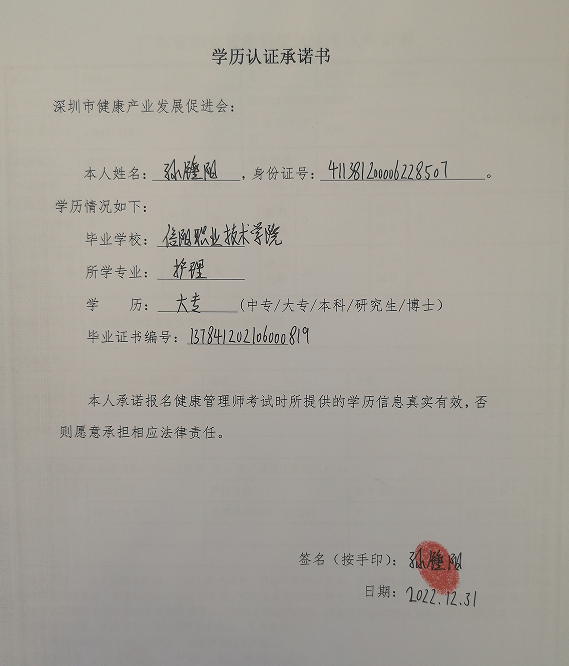 学历认证承诺书
深圳市健康产业发展促进会：
本人姓名：孙臃阳，身份证号：411381200006228507。
学历情况如下：
毕业学校：信阳职业技术学院
所学专业：护理
学 历：大专(中专/大专/本科/研究生/博士)
毕业证书编号：137841202106000819
本人承诺报名健康管理师考试时所提供的学历信息真实有效，否
则愿意承担相应法律责任。
签名（按手印)：孙 阳
日期：2022.12.31